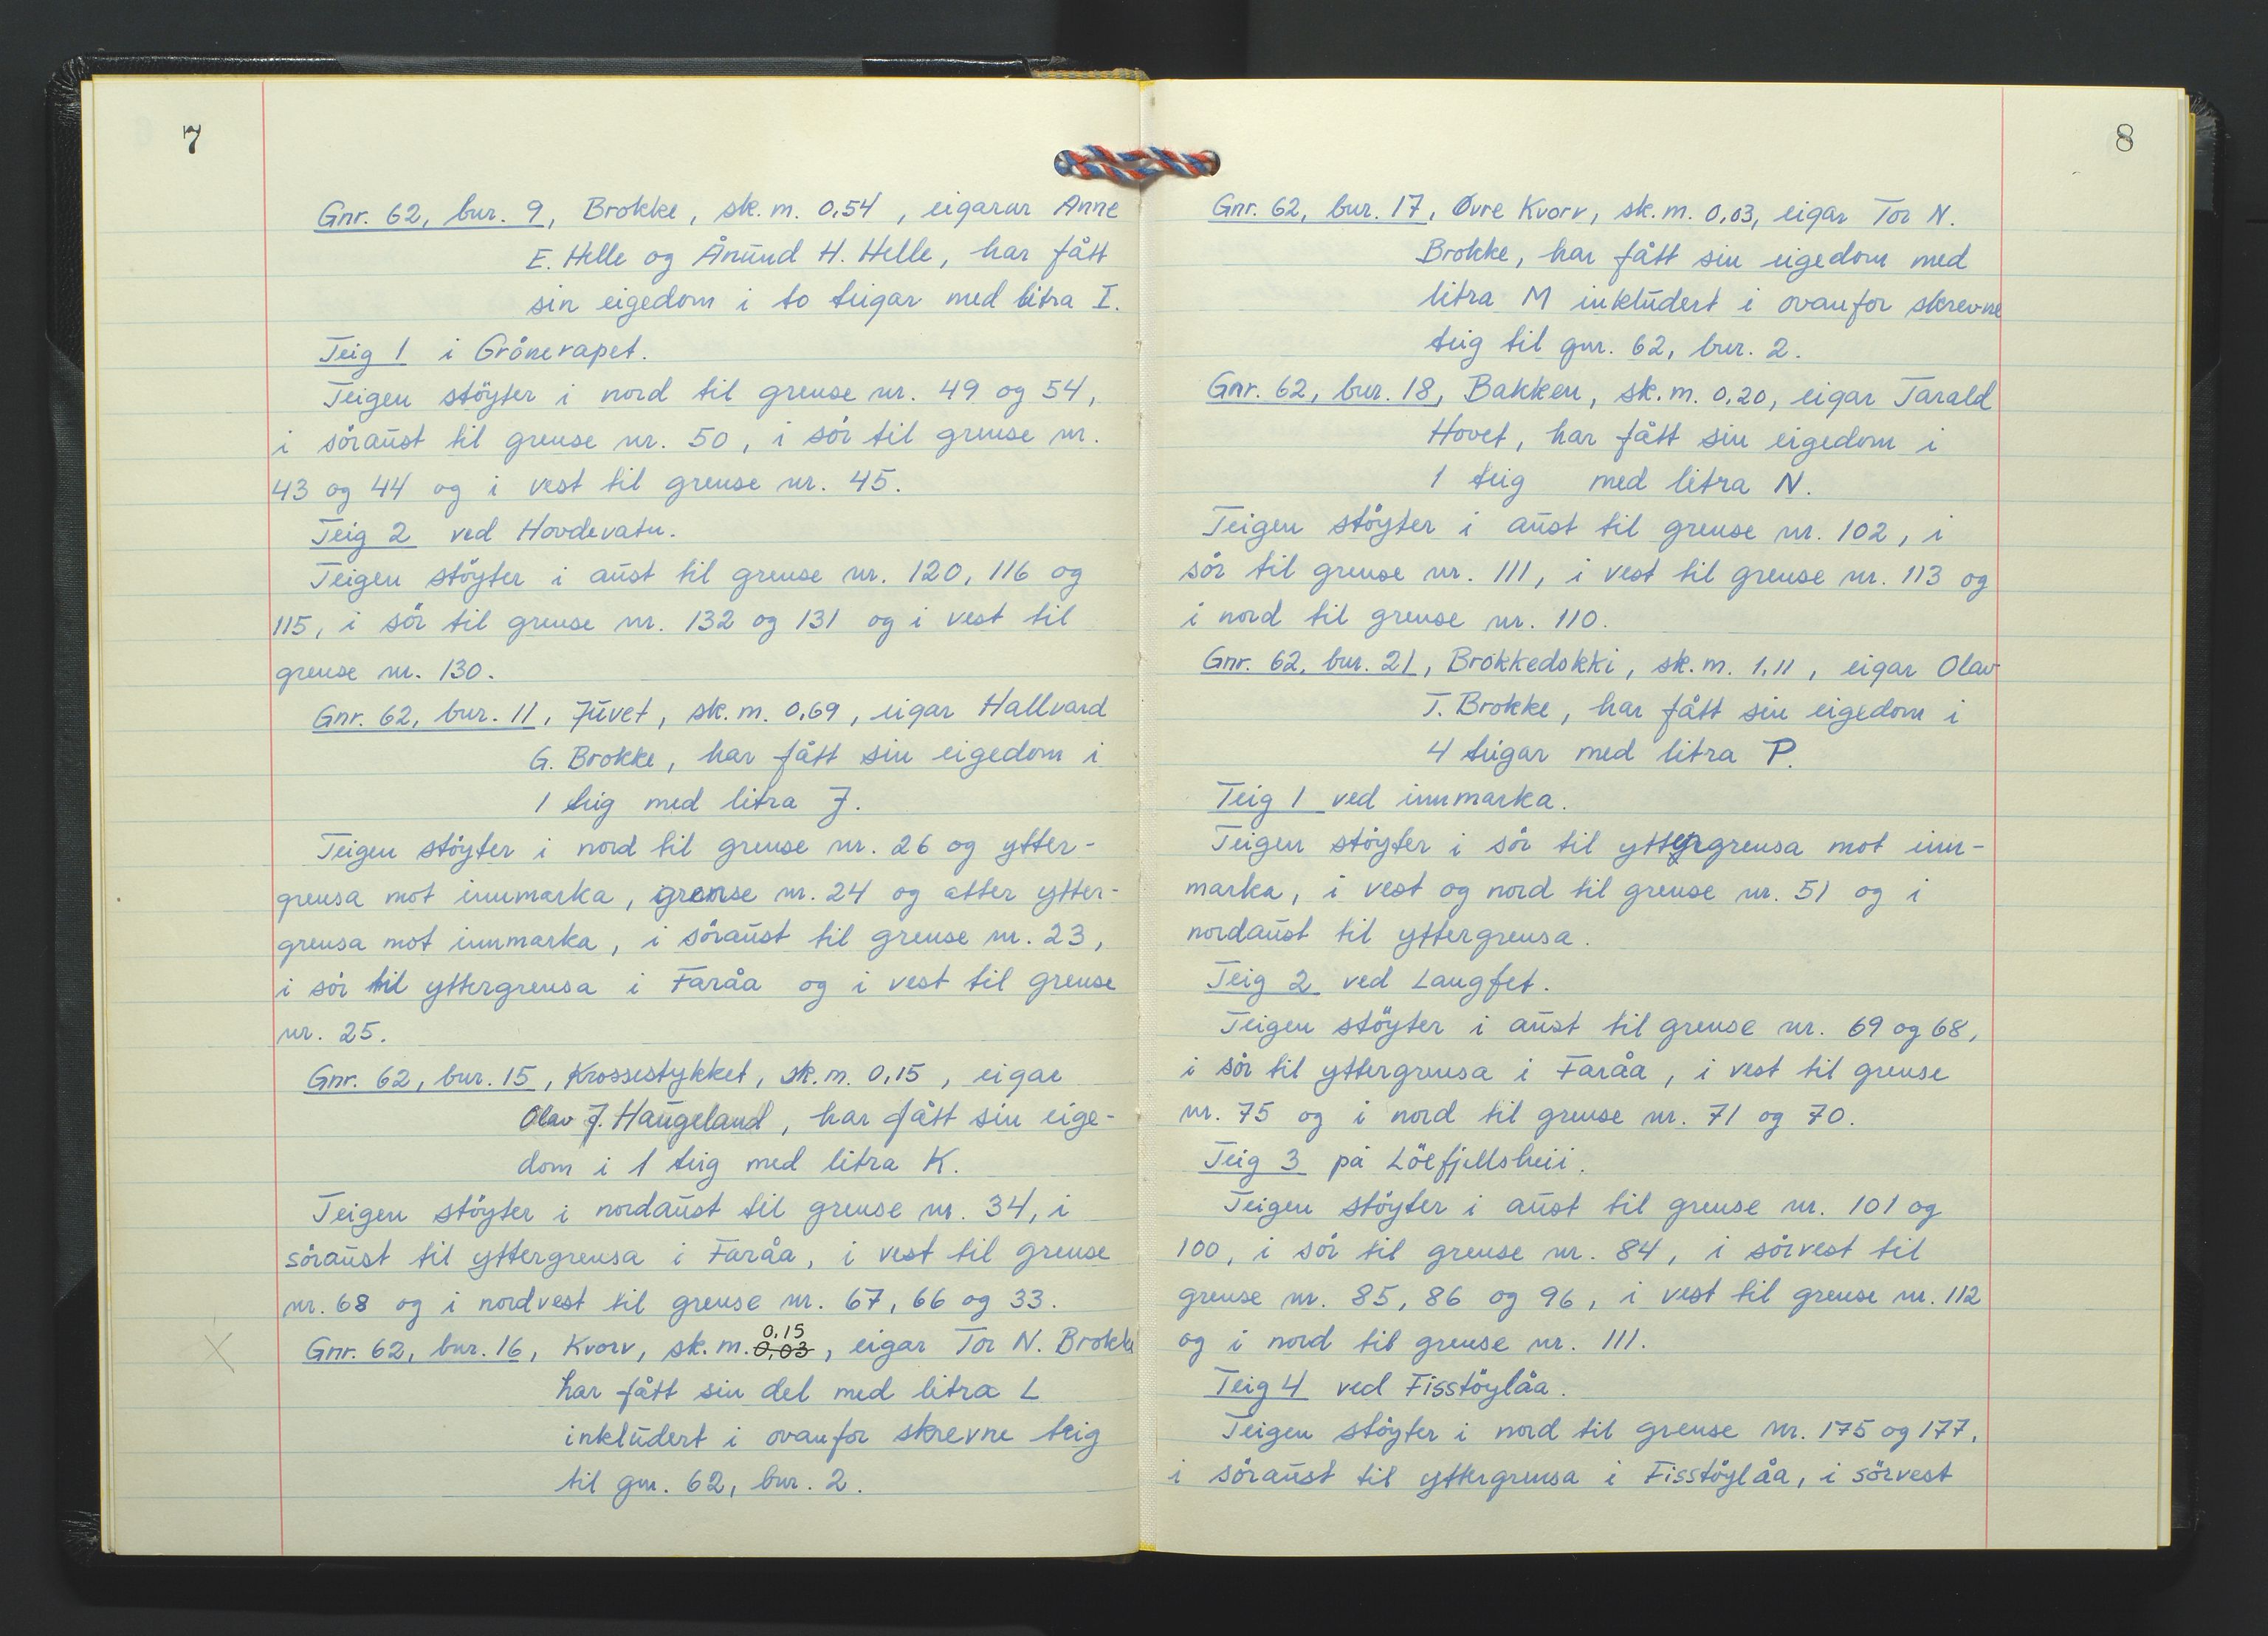 7
Gnr. 62, bnr. 9, Brokke, sk.m. 0,54, eigarar Anne
E. Helle og Ånund H. Helle, har fått
sin eigedom i to teigar med litra I.
Teig 1 i Grånerapet.
Teigen støyter i nord til grense nr. 49 og 54,
i søraust til grense nr. 50, i sør til grense nr.
43 og 44 og i vest til grense nr. 45.
Teig 2 ved Hovdevatn.
Teigen støyter i aust til grense nr. 120, 116 og
115, i sør til grense nr. 132 og 131 og i vest til
grense nr. 130.
Gnr. 62, bnr. 11, Juvet, sk.m. 0,69, eigar Hallvard
G. Brokke, har fått sin eigedom i
1 teig med litra J.
Teigen støyter i nord til grense nr. 26 og ytter-
grensa mot innmarka, grense nr. 24 og atter ytter-
grensa mot innmarka, i søraust til grense nr. 23,
i sør til yttergrensa i Faråa og i vest til grense
nr. 25.
Gnr. 62, bnr. 15, Krossestykket, sk.m. 0,15, eigar
Olav J. Haugeland, har fått sin eige-
dom i 1 teig med litra K.
Teigen støyter i nordaust til grense nr. 34, i
søraust til yttergrensa i Faråa, i vest til grense
nr. 68 og i nordvest til grense nr. 67, 66 og 33.
0,15
X Gnr. 62, bnr. 16, Kvorv, sk.m. 0,03, eigar Tor N. Brokke
har fått sin del med litra L
inkludert i ovanfor skrevne teig
til gnr. 62, bnr. 2.
8
Gnr. 62, bnr. 17, Øvre Kvorv, sk.m. 0,03, eigar Tor N.
Brokke, har fått sin eigedom med
litra M inkludert i ovanfor skrevne
teig til gnr. 62, bnr. 2.
Gnr. 62, bnr. 18, Bakken, sk.m. 0,20, eigar Tarald
Hovet, har fått sin eigedom i
1 teig med litra N.
Teigen støyter i aust til grense nr. 102, i
sør til grense nr. 111, i vest til grense nr. 113 og
i nord til grense nr. 110.
Gnr. 62, bnr. 21, Brokkedokki, sk.m. 1,11, eigar Olav
T. Brokke, har fått sin eigedom i
4 teigar med litra P.
Teig 1 ved innmarka.
Teigen støyter i sør til yttergrensa mot inn-
marka, i vest og nord til grense nr. 51 og i
nordaust til yttergrensa.
Teig 2 ved Langfet.
Teigen støyter i aust til grense nr. 69 og 68,
i sør til yttergrensa i Faråa, i vest til grense
nr. 75 og i nord til grense nr. 71 og 70.
Teig 3 på Löefjellsheii.
Teigen støyter i aust til grense nr. 101 og
100, i sør til grense nr. 84, i sørvest til
grense nr. 85, 86 og 96, i vest til grense nr. 112
og i nord til grense nr. 111.
Teig 4 ved Fisstöylåa.
Teigen støyter i nord til grense nr. 175 og 177,
i søraust til yttergrensa i Fisstöylåa, i sørvest